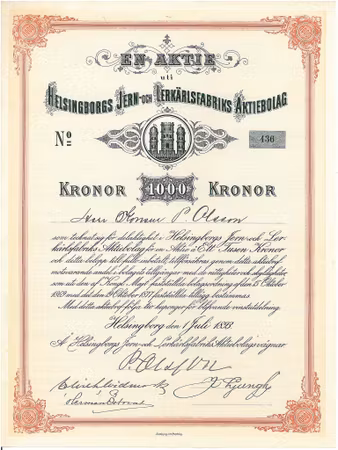 EN AKTIE
uti
HELSINGBORGS JERN- OCH LERKÄRLSFABRIKS AKTIEBOLAG
No 436
KRONOR 1000 KRONOR
Herr P. Olsson
som tecknat sig för delaktighet i Helsingborgs Jern- och Ler-
kärlsfabriks Aktiebolag för en Aktie à Ett Tusen Kronor
och detta belopp till fullo inbetalt, tillförsäkras genom detta aktiebref
motsvarande andel i bolagets tillgångar med de rättigheter och skyldigheter,
som den af Kongl. Majt fastställda bolagsordning af den 15 October
1869 med det den 9 October 1877 fastställda tillägg bestämmes
Med detta aktiebref följa tio kuponger för tillbörlig vinstutdelning.
Helsingborg den 1 Juli 1893.
Å Helsingborgs Jern- och Lerkärlsfabriks Aktiebolags vägnar
P. Olsson